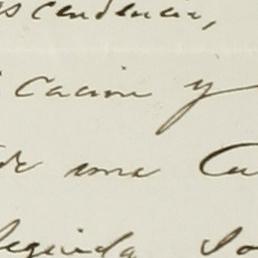 scendencia,
cacion y
de una Cu
legirla So